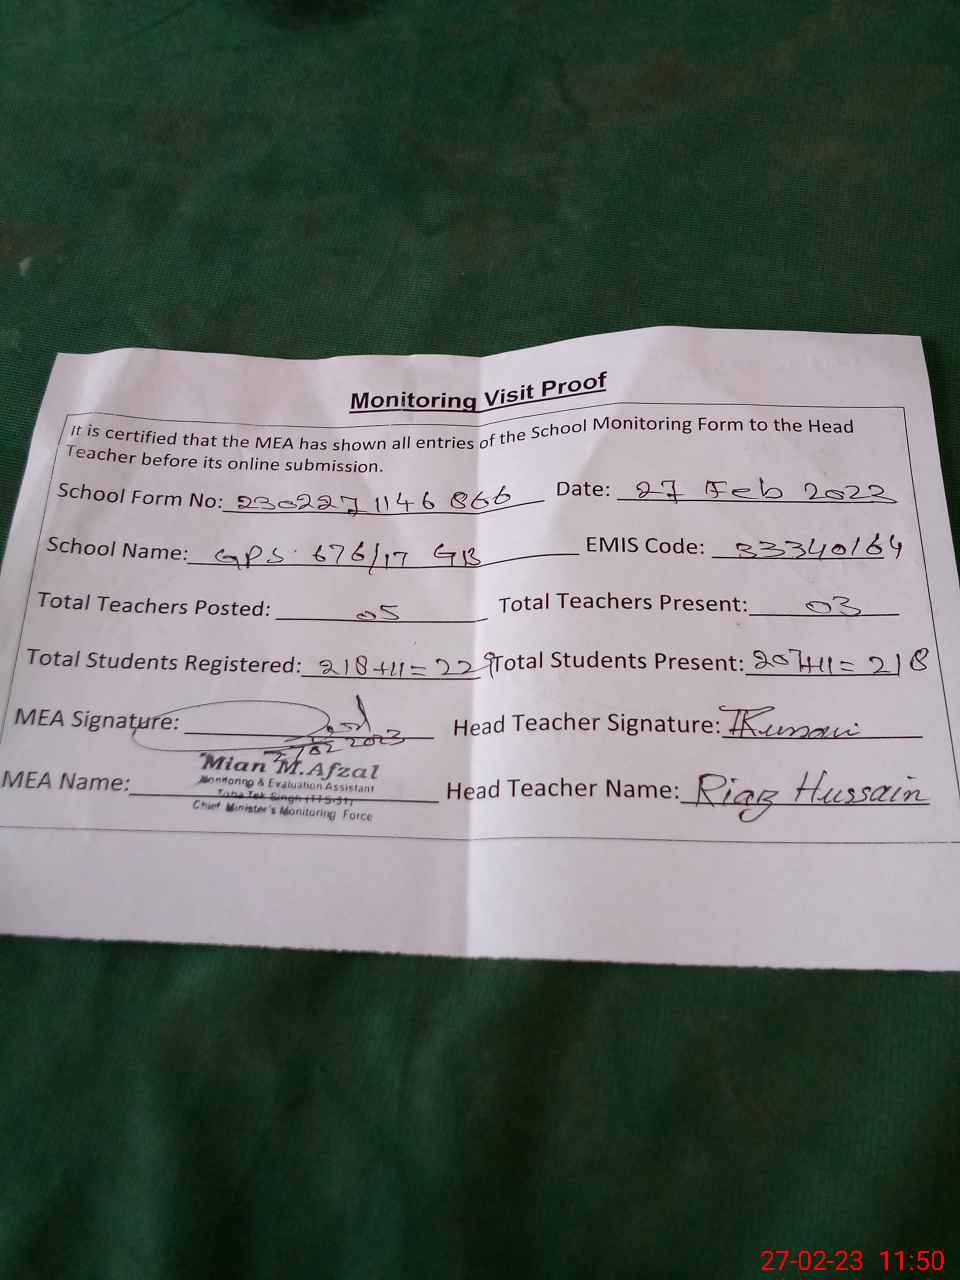 Monitoring Visit Proof
It is certified that the MEA has shown all entries of the School Monitoring Form to the Head
Teacher before its online submission.
School Form No: 230227 1146 866 Date: 27 Feb 2023
School Name: GPS. 676/17 GB EMIS Code: 33340164
Total Teachers Posted: 05 Total Teachers Present: 03
Total Students Registered: 218+11=229 Total Students Present: 207+11=218
MEA Signature: Head Teacher Signature: RHussain
2023
MEA Name: Mian M.Afzal Head Teacher Name: Riaz Hussain
Monitoring & Evaluation Assistant
Toba Tek Singh (TTS-31)
Chief Minister's Monitoring Force
27-02-23 11:50